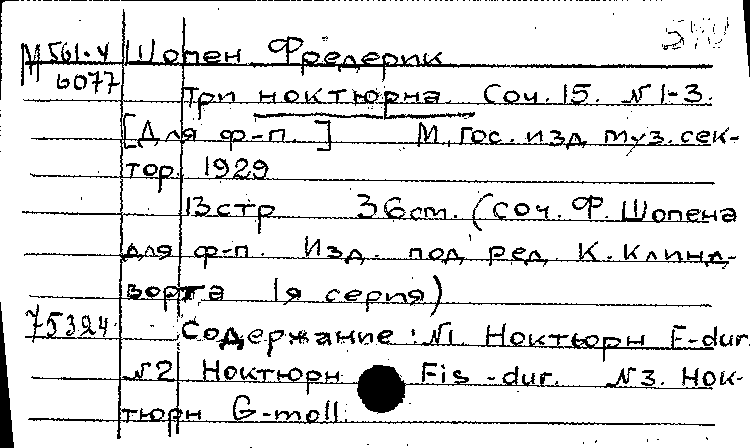 М 561-У Шопен Фредерик
6077
Три ноктюрна. Соч. 15. №1-3.
[Для ф-п.] М, гос. изд. муз. сек-
тор. 1929
13 стр 36 см. (Соч. Ф. Шопена
для ф-п. Изд. под ред. К. Клинд-
ворта 1я серия)
75324 Содержание: №1. Ноктюрн F-dur.
№2 Ноктюрн Fis-dur. №3. Нок-
тюрн G-moll.